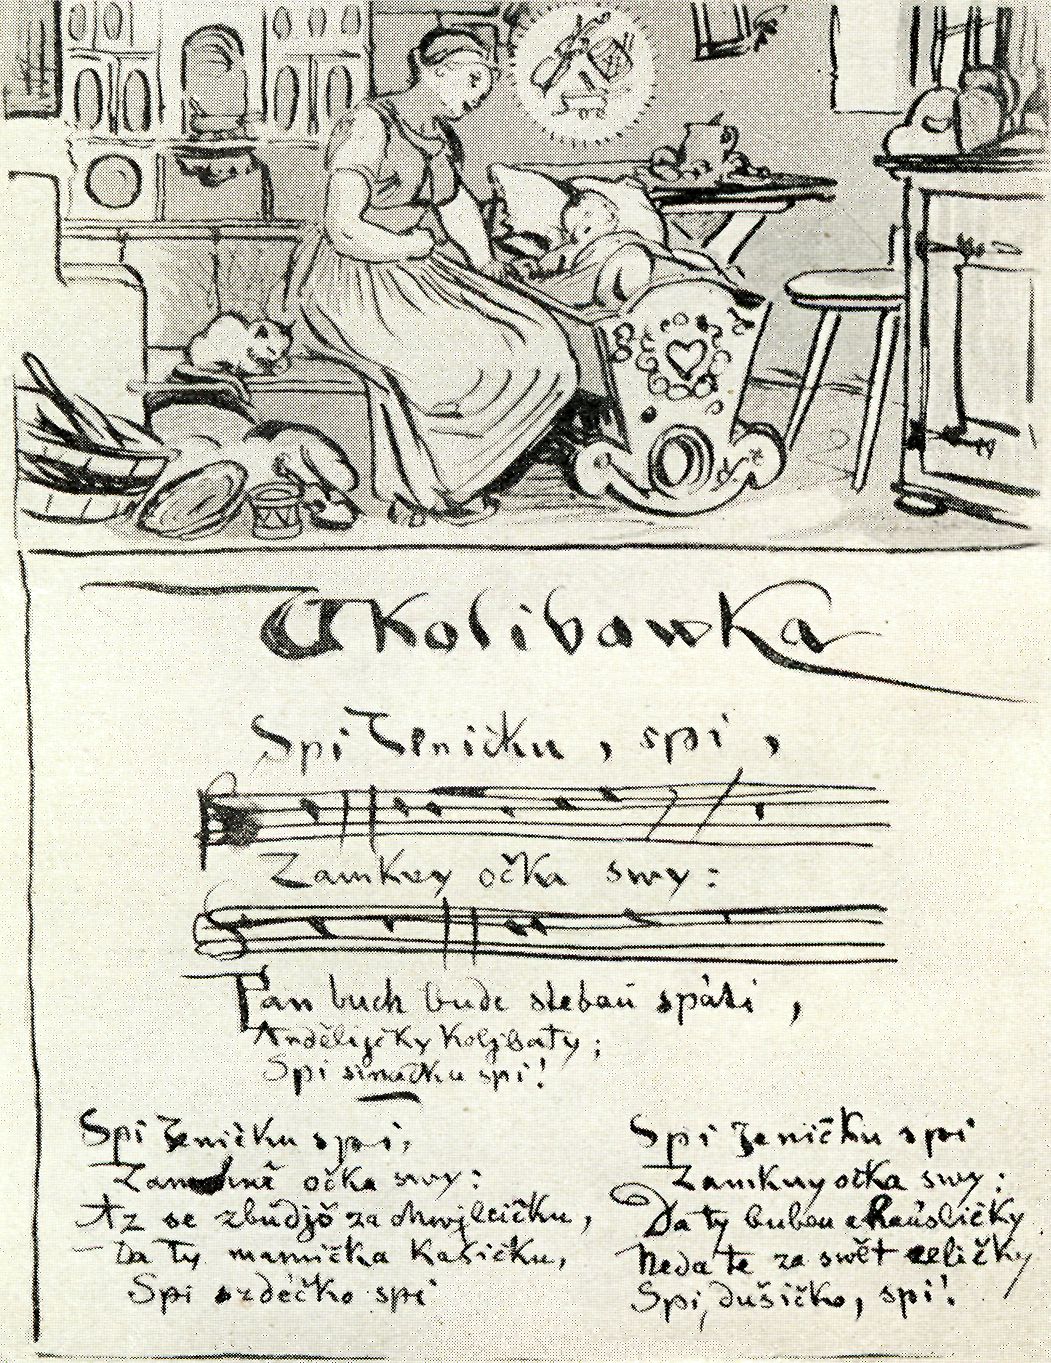 Ukolibawka
Spi Ženičku, spi,
Zamkny očka swy:
Pan buch bude stebaů spáti,
Anděličky Koljbaty;
Spi sinačku spi!
Spi Ženičku spi,
očka swy:
Až se zbudjš za chwjleičku,
Da Ty mamička Kašičku,
Spi srdéčko spi
Spi Ženičku spi
Zamkny očka swy:
Da ty bubnu a hausličky
Neda te za swět celičky,
Spi, dušičko, spi!